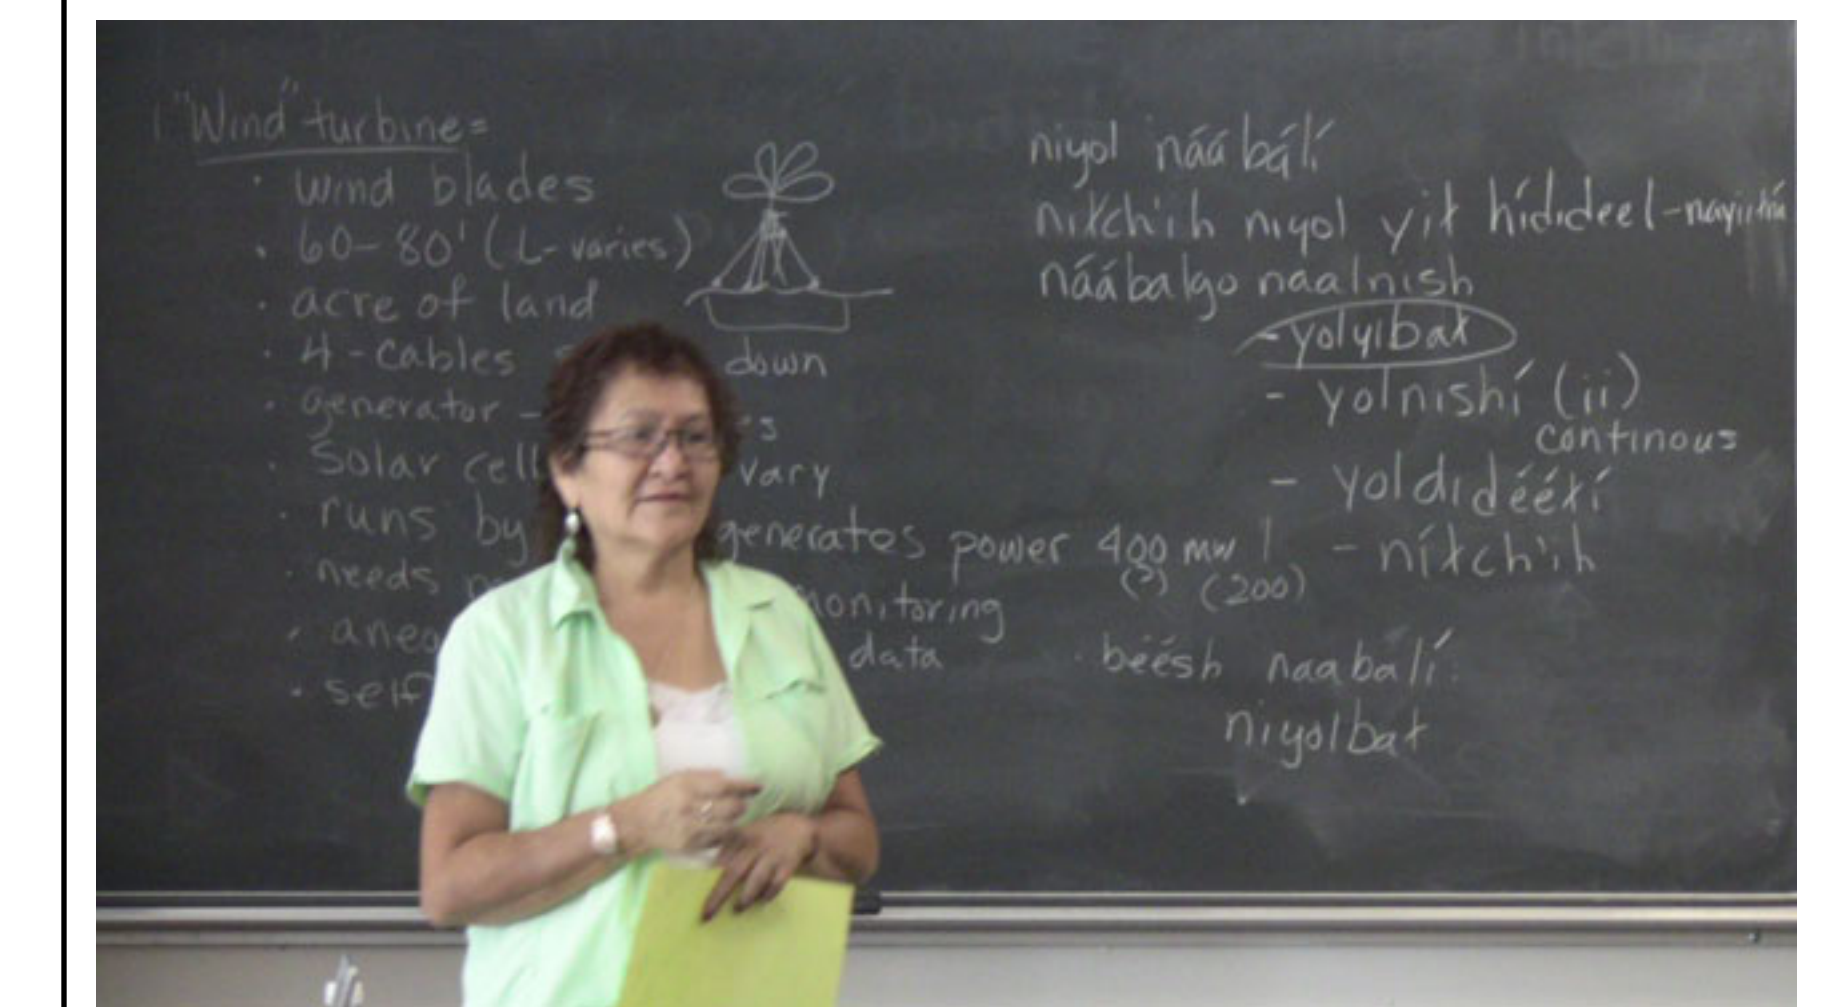 1. "Wind" turbine =
· wind blades
· 60-80' (L-varies)
· acre of land
· 4-cables
down
· generator -
· solar cell
vary
· runs by
generates power 400 mw
(?) (200)
· needs
monitoring
data
· self
niyol náábálí
níłch'ih niyol yił hídídeel-
náábalgo naalnish
- yolyibał
- yolnishí (ii)
continous
- yoldidééłí
- níłch'ih
· béésh naabalí
niyolbał